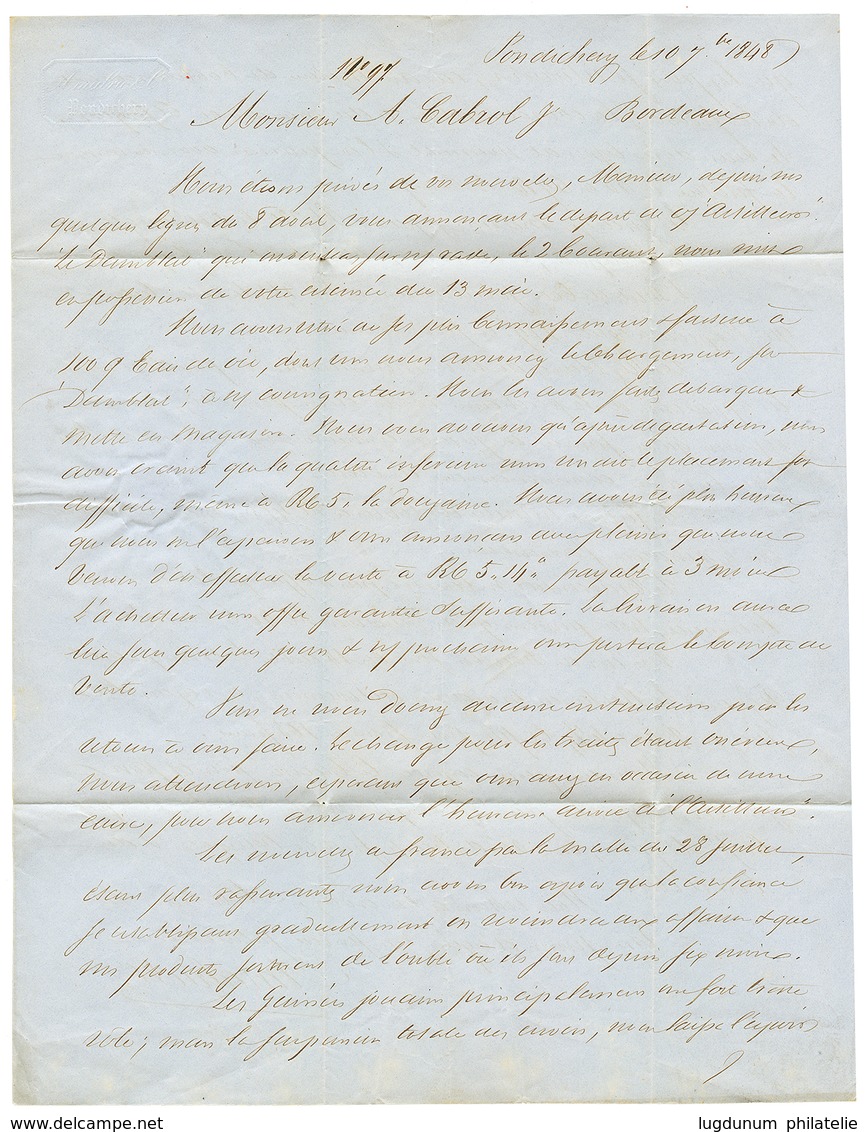 Pondichery
Pondichery le 10 7bre 1848
N° 97
Monsieur A. Cabrol Je Bordeaux
Nous étions privés de vos nouvelles, Monsieur, depuis vos
quelques lignes du 8 avril, nous annonçant le départ de
Le qui sur rade, le 2 Courant, nous mit
en possession de votre estimée du 13 mai.
Nous avons
100 q Eau de vie, dont vous nous annoncez le Chargement, par
à consignation. Nous les avons fait débarquer &
mettre en magasin. Nous vous avouons qu'après dégustation, nous
avons craint que la qualité inférieure n'en rendit le placement fort
difficile, même à R 5, la douzaine. Nous avons été plus heureux
que nous ne l'espérions & vous annonçons avec plaisir que nous
venons d'en effectuer la vente à R 5.14 payable à 3 mois
L'acheteur nous offre garantie suffisante. La livraison aura
lieu sous quelques jours & prochaine vous portera le Compte de
Vente.
Vous ne nous donnez aucune instruction pour les
retours à vous faire. Le change pour les traites étant onéreux,
nous attendrons, espérant que vous aurez eu occasion de nous
écrire, pour nous annoncer l'heureuse arrivée de
Les nouvelles de france par la malle du 28 juillet,
étant plus rassurantes nous avons bon espoir que la confiance
se rétablissant graduellement on reviendra aux affaires & que
nos produits sortiront de l'oubli où ils sont depuis six mois.
Les Guinées jouaient principalement un fort triste
rôle; mais la suspension totale des envois, nous laisse l'espoir
www.delcampe.net
lugdunum philatelie